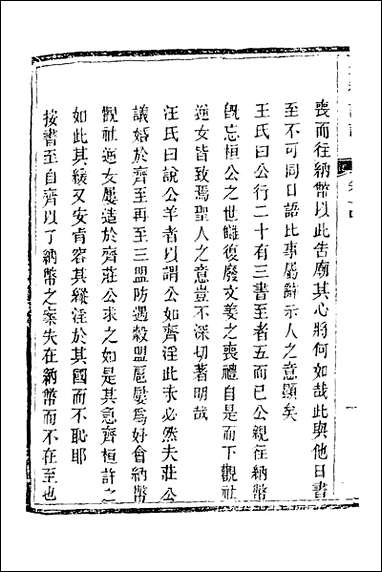 喪而往納幣以此告廟其心將何如哉此與他日書
至不可同日語比事屬辭示人之意顯矣
王氏曰公行二十有三書至者五而已公親往納幣
既忘桓公之世讎復廢文姜之喪禮自是而下觀社
逆女皆致焉聖人之意豈不深切著明哉
汪氏曰說公羊者以謂公如齊淫此未必然夫莊公
議婚於齊至再至三盟防遇穀盟扈屢爲好會納幣
觀社逆女屢造於齊莊公求之如是其急齊桓許之
如此其緩又安肯容其縱淫於其國而不恥耶
按書至自齊以了納幣之案失在納幣而不在至也